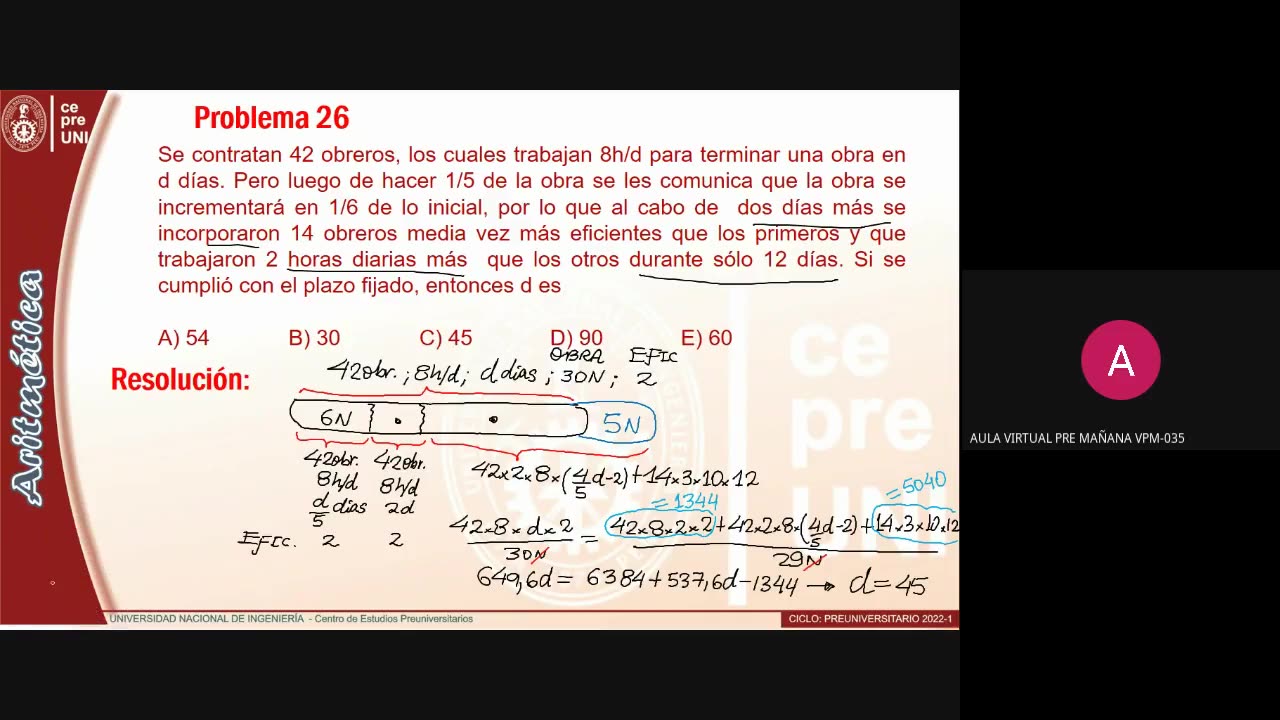 ce
pre
UNI
Problema 26
Se contratan 42 obreros, los cuales trabajan 8h/d para terminar una obra en
d días. Pero luego de hacer 1/5 de la obra se les comunica que la obra se
incrementará en 1/6 de lo inicial, por lo que al cabo de dos días más se
incorporaron 14 obreros media vez más eficientes que los primeros y que
trabajaron 2 horas diarias más que los otros durante sólo 12 días. Si se
cumplió con el plazo fijado, entonces d es
A) 54 B) 30 C) 45 D) 90 E) 60
Resolución:
OBRA EFIC
42obr.; 8h/d; d dias; 30N; 2
6N 5N
42obr. 42obr.
8h/d 8h/d
d/5 dias 2d
EFIC. 2 2
42×2×8×(4/5d-2)+14×3×10×12
=1344 =5040
42×8×d×2/30N = 42×8×2×2+42×2×8×(4/5d-2)+14×3×10×12/29N
649,6d= 6384+537,6d-1344 → d=45
Aritmética
ce
pre
UNI
UNIVERSIDAD NACIONAL DE INGENIERÍA - Centro de Estudios Preuniversitarios
CICLO: PREUNIVERSITARIO 2022-1
A
AULA VIRTUAL PRE MAÑANA VPM-035